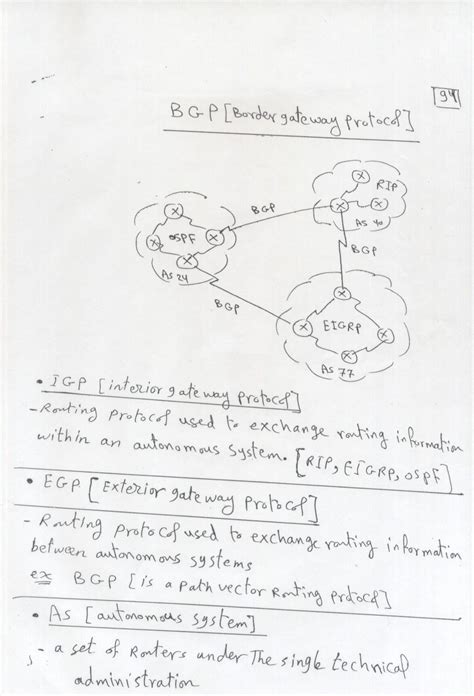 94
BGP [Border gateway protocol]
RIP
BGP
AS 40
OSPF
BGP
AS 24
BGP
EIGRP
AS 77
• IGP [interior gateway protocol]
- Routing protocol used to exchange routing information
within an autonomous system. [RIP, EIGRP, OSPF]
• EGP [Exterior gateway protocol]
- Routing protocol used to exchange routing information
between autonomous systems
ex BGP [is a path vector Routing protocol]
• AS [autonomous system]
- a set of Routers under The single technical
administration